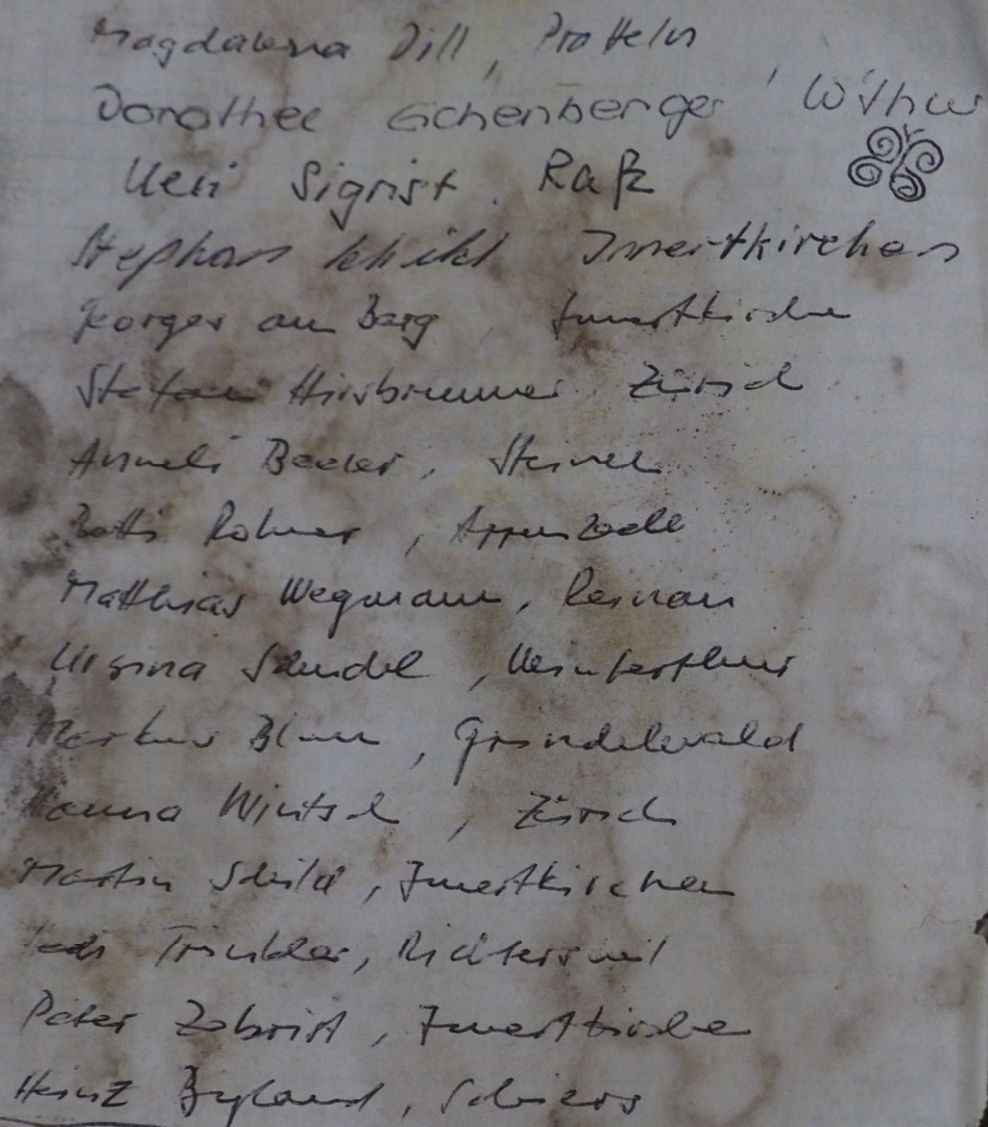 Magdalena Dill, Pratteln
Dorothee Eichenberger, W'thur
Ueli Sigrist. Rafz
Stephan Schild Innertkirchen
am Berg, Innertkirchen
Stefan Hirsbrunner Zürich
Anneli, 
Rohner, Appenzell
Matthias Wegmann, Rheinau
Ursina, Winterthur
Markus, Grindelwald
Hanna Wintsch, Zürich
Martin Schild, Innertkirchen
Trinkler, Richterswil
Peter Zobrist, Innertkirchen
Heinz Byland, Schiers